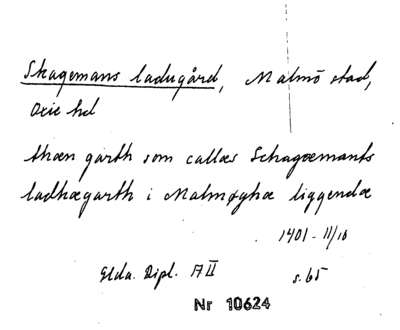 Skagemans ladugård, Malmö stad,
Oxie hd
thæn garth som callæs Schagæmants
ladhægarth i Malmøghæ liggendæ
1401 - 11/10
Elda. Dipl. A II s. 65
Nr 10624